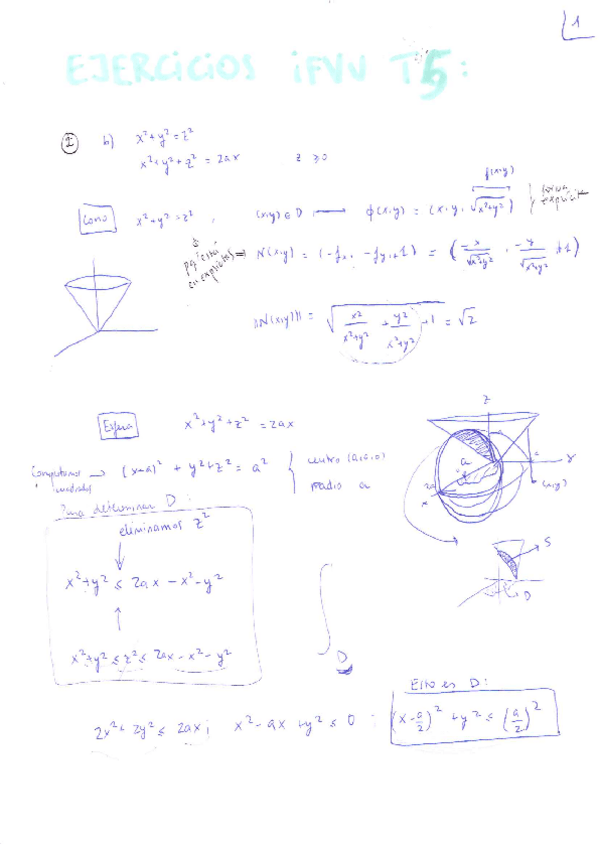 1
EJERCICIOS iFVV T5:
2 b) x²+y²=z²
x²+y²+z² = 2ax z ≥0
f(x,y)
Cono x²+y²=z², (x,y)∈D ⟼ ϕ(x,y) = (x,y, √x²+y²) } forma explícita
N(x,y) = (-fx, -fy, +1) = (-x/√x²+y², -y/√x²+y², +1)
||N(x,y)|| = √(x²/(x²+y²) + y²/(x²+y²) + 1) = √2
Esfera x²+y²+z² = 2ax
Completamos cuadrados → (x-a)² + y²+z² = a² { centro (a,0,0)
radio a
Para determinar D:
eliminamos z²
x²+y² ≤ 2ax - x²-y²
x²+y² ≤ z² ≤ 2ax - x²-y²
z
a
y
2a
x
(x,y)
S
D
∫
D
Esto es D:
2x²+2y² ≤ 2ax; x²-ax+y² ≤ 0 ; (x-a/2)² + y² ≤ (a/2)²